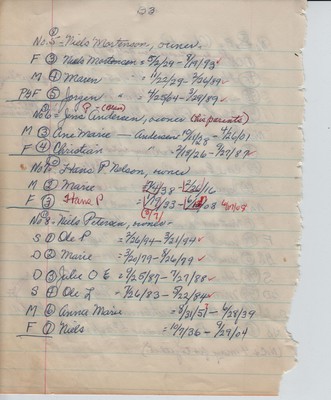 23
No. 5 - Niels Mortenson, owner.
F ③ Niels Mortensen = 5/2/29 - 8/19/93 ✓
M ④ Maren " = 11/22/29 - 3/26/89 ✓
P4F ⑤ Jorgen " = 4/25/64 - 3/29/89 ✓
No 6 = Jens P - (Own) Andersen, owner (his parents)
M ③ Ane Marie - Andersen 1828 - 4/26/01
F ④ Christian " = 1/18/26 - 3/27/87 ✓
No 7 = Hans P Nelson, owner
M ② Marie = 38 - 2/26/16
F ③ Hans P = 33 - 08
No 8 - Niels Petersen, owner -
S ① Ole P = 2/26/94 - 3/21/94 ✓
D ② Marie = 3/20/79 - 8/26/89 ✓
D ③ Julie O E = 2/25/87 - 7/27/88 ✓
S ④ Ole L = 7/26/83 - 5/22/84 ✓
M ⑥ Annie Marie = 8/31/51 - 6/28/39
F ⑦ Niels = 10/7/36 - 9/29/04